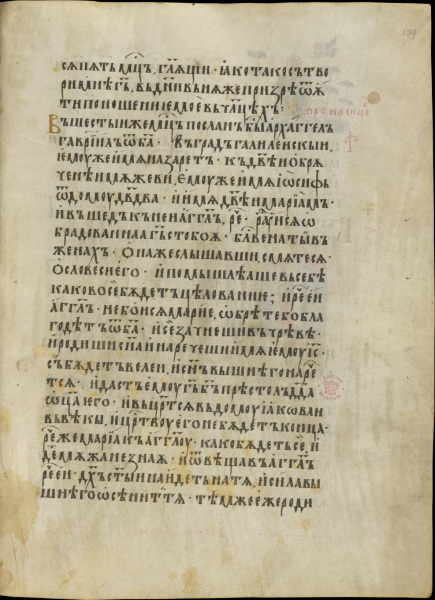 сѧпѧть мⷭ҇ць, гл҃ѧщи · ꙗко тако сътво
ри мнѣ гь҃, вь дни вь нѧже призрѣ ѿѧ
ти поношение мое въ чл҃цѣхъ:
Въ шестыи же мⷭ҇ць посланъ бы архаггелъ
гавріилъ ѿ ба҃ · въ градъ галилеискыи,
емоу же имѧ назареть · къ дв҃ѣ ѡбрѫ
ченѣ мѫжеви, емоу же имѧ іѡсифь
ѿ домоу дв҃да · и имѧ дв҃ѣ маріамъ ·
и въшедъ къ неи аггл҃ъ, рⷱ҇е · раⷣуисѧ ѡ
брадованнаа гь҃ с тобоѫ · блⷭ҇вена ты въ
женахъ · ѡна же слышавши, смѧтесѧ
ѡ словеси его · и помышлѣаше въ себѣ
каково се бѫдеть цѣлование; и рⷱ҇е еи
аггл҃ъ · не боисѧ маріе, ѡбрѣте бо бла
годѣть ѿ ба҃ · и се зачнеши въ чрѣвѣ ·
и родиши сн҃а и наречеши имѧ емоу іс҃ ·
съ бѫдеть велеи, и сн҃ъ вышнѣго наре
тсѧ · и дасть емоу гь҃ бь҃ прѣстолъ дв҃да
ѡц҃а его · и въцр҃итсѧ въ домоу іакѡвли
въ вѣкы, и црⷭ҇твоу его не бѫдеть конца ·
рⷱ҇е же маріа къ агглоу · како бѫдеть се, и
деже мѫжа не знаѫ · и ѿвѣщавъ аггл҃ъ
рⷱ҇е еи · дх҃ъ ст҃ыи наидеть на тѧ, и сила вы
шнѣго ѡсѣнит тѧ · тѣмже еже роди